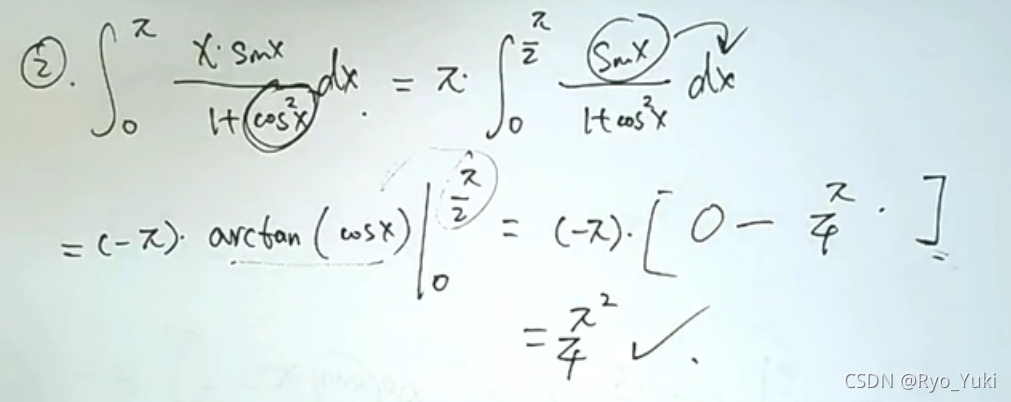 ②. ∫₀^π x·sinx / (1+cos²x) dx = π·∫₀^(π/2) sinx / (1+cos²x) dx
= (-π)· arctan(cosx) |₀^(π/2) = (-π)·[0 - π/4 ·]
= π²/4 ✓.
CSDN @Ryo_Yuki